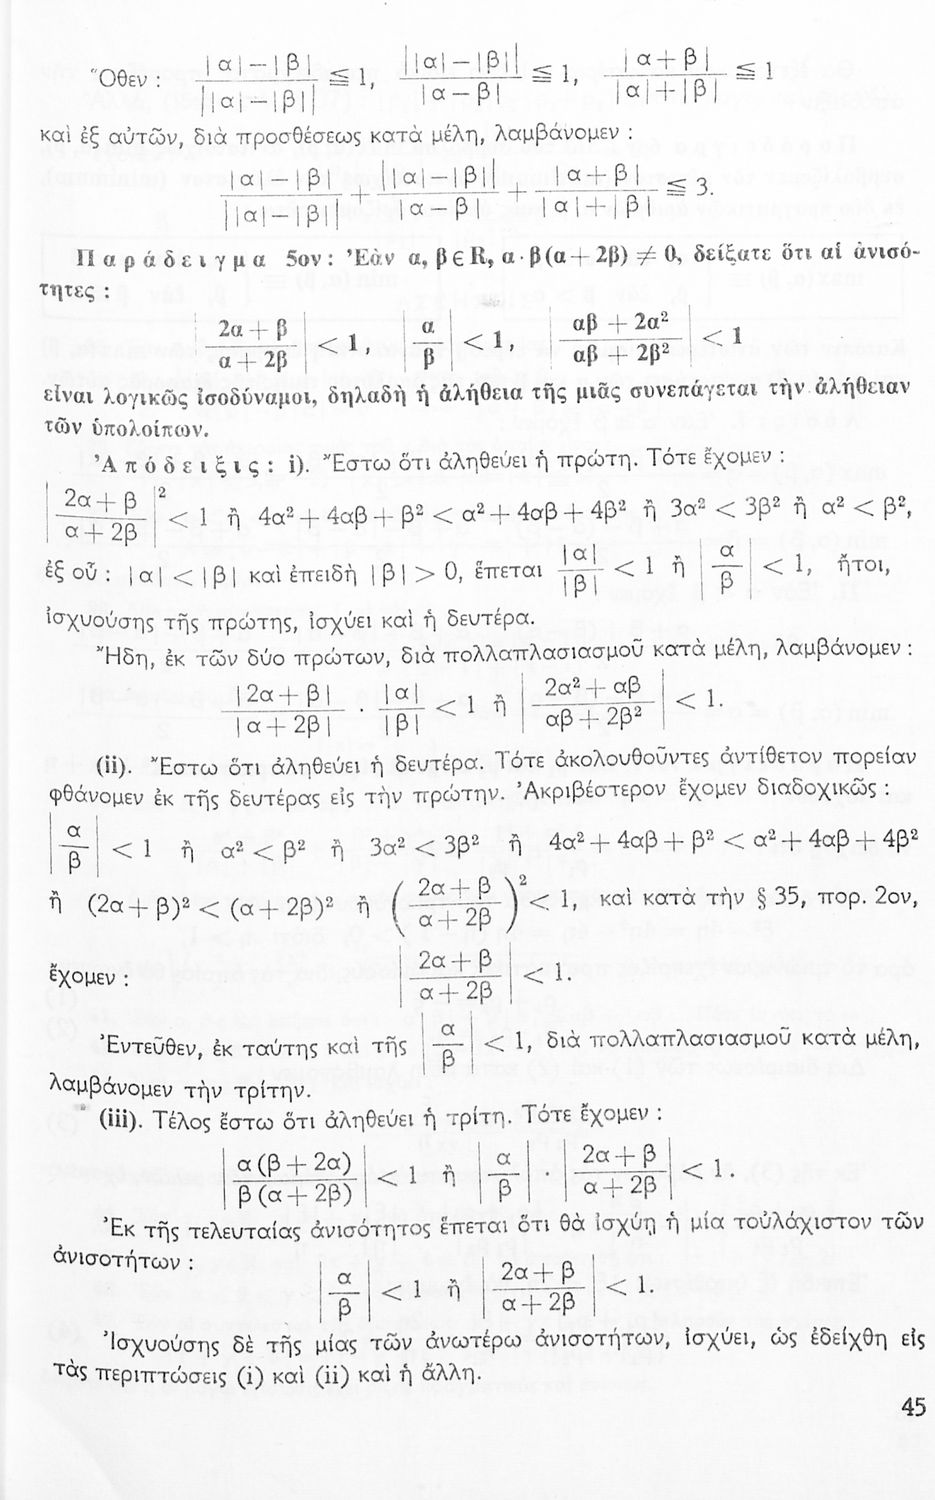 Ὅθεν : $\frac{|α|-|β|}{||α|-|β||} \leqq 1, \frac{||α|-|β||}{|α-β|} \leqq 1, \frac{|α+β|}{|α|+|β|} \leqq 1$
καὶ ἐξ αὐτῶν, διὰ προσθέσεως κατὰ μέλη, λαμβάνομεν :
$\frac{|α|-|β|}{||α|-|β||} + \frac{||α|-|β||}{|α-β|} + \frac{|α+β|}{|α|+|β|} \leqq 3.$
Παράδειγμα 5ον: Ἐὰν α, β ∈ R, α·β(α+2β) ≠ 0, δείξατε ὅτι αἱ ἀνισό-
τητες :
$\left|\frac{2α+β}{α+2β}\right| < 1, \left|\frac{α}{β}\right| < 1, \left|\frac{αβ+2α²}{αβ+2β²}\right| < 1$
εἶναι λογικῶς ἰσοδύναμοι, δηλαδὴ ἡ ἀλήθεια τῆς μιᾶς συνεπάγεται τὴν ἀλήθειαν
τῶν ὑπολοίπων.
Ἀπόδειξις: i). Ἔστω ὅτι ἀληθεύει ἡ πρώτη. Τότε ἔχομεν :
$\left|\frac{2α+β}{α+2β}\right|^2 < 1$ ἢ 4α² + 4αβ + β² < α² + 4αβ + 4β² ἢ 3α² < 3β² ἢ α² < β²,
ἐξ οὗ : |α| < |β| καὶ ἐπειδὴ |β| > 0, ἕπεται $\frac{|α|}{|β|} < 1$ ἢ $\left|\frac{α}{β}\right| < 1$, ἤτοι,
ἰσχυούσης τῆς πρώτης, ἰσχύει καὶ ἡ δευτέρα.
Ἤδη, ἐκ τῶν δύο πρώτων, διὰ πολλαπλασιασμοῦ κατὰ μέλη, λαμβάνομεν :
$\frac{|2α+β|}{|α+2β|} \cdot \frac{|α|}{|β|} < 1$ ἢ $\left|\frac{2α²+αβ}{αβ+2β²}\right| < 1.$
(ii). Ἔστω ὅτι ἀληθεύει ἡ δευτέρα. Τότε ἀκολουθοῦντες ἀντίθετον πορείαν
φθάνομεν ἐκ τῆς δευτέρας εἰς τὴν πρώτην. Ἀκριβέστερον ἔχομεν διαδοχικῶς :
$\left|\frac{α}{β}\right| < 1$ ἢ α² < β² ἢ 3α² < 3β² ἢ 4α² + 4αβ + β² < α² + 4αβ + 4β²
ἢ (2α+β)² < (α+2β)² ἢ $\left(\frac{2α+β}{α+2β}\right)^2 < 1$, καὶ κατὰ τὴν § 35, πορ. 2ον,
ἔχομεν : $\left|\frac{2α+β}{α+2β}\right| < 1.$
Ἐντεῦθεν, ἐκ ταύτης καὶ τῆς $\left|\frac{α}{β}\right| < 1$, διὰ πολλαπλασιασμοῦ κατὰ μέλη,
λαμβάνομεν τὴν τρίτην.
(iii). Τέλος ἔστω ὅτι ἀληθεύει ἡ τρίτη. Τότε ἔχομεν :
$\left|\frac{α(β+2α)}{β(α+2β)}\right| < 1$ ἢ $\left|\frac{α}{β}\right| \left|\frac{2α+β}{α+2β}\right| < 1.$
Ἐκ τῆς τελευταίας ἀνισότητος ἕπεται ὅτι θὰ ἰσχύῃ ἡ μία τοὐλάχιστον τῶν
ἀνισοτήτων : $\left|\frac{α}{β}\right| < 1$ ἢ $\left|\frac{2α+β}{α+2β}\right| < 1.$
Ἰσχυούσης δὲ τῆς μίας τῶν ἀνωτέρω ἀνισοτήτων, ἰσχύει, ὡς ἐδείχθη εἰς
τὰς περιπτώσεις (i) καὶ (ii) καὶ ἡ ἄλλη.
45